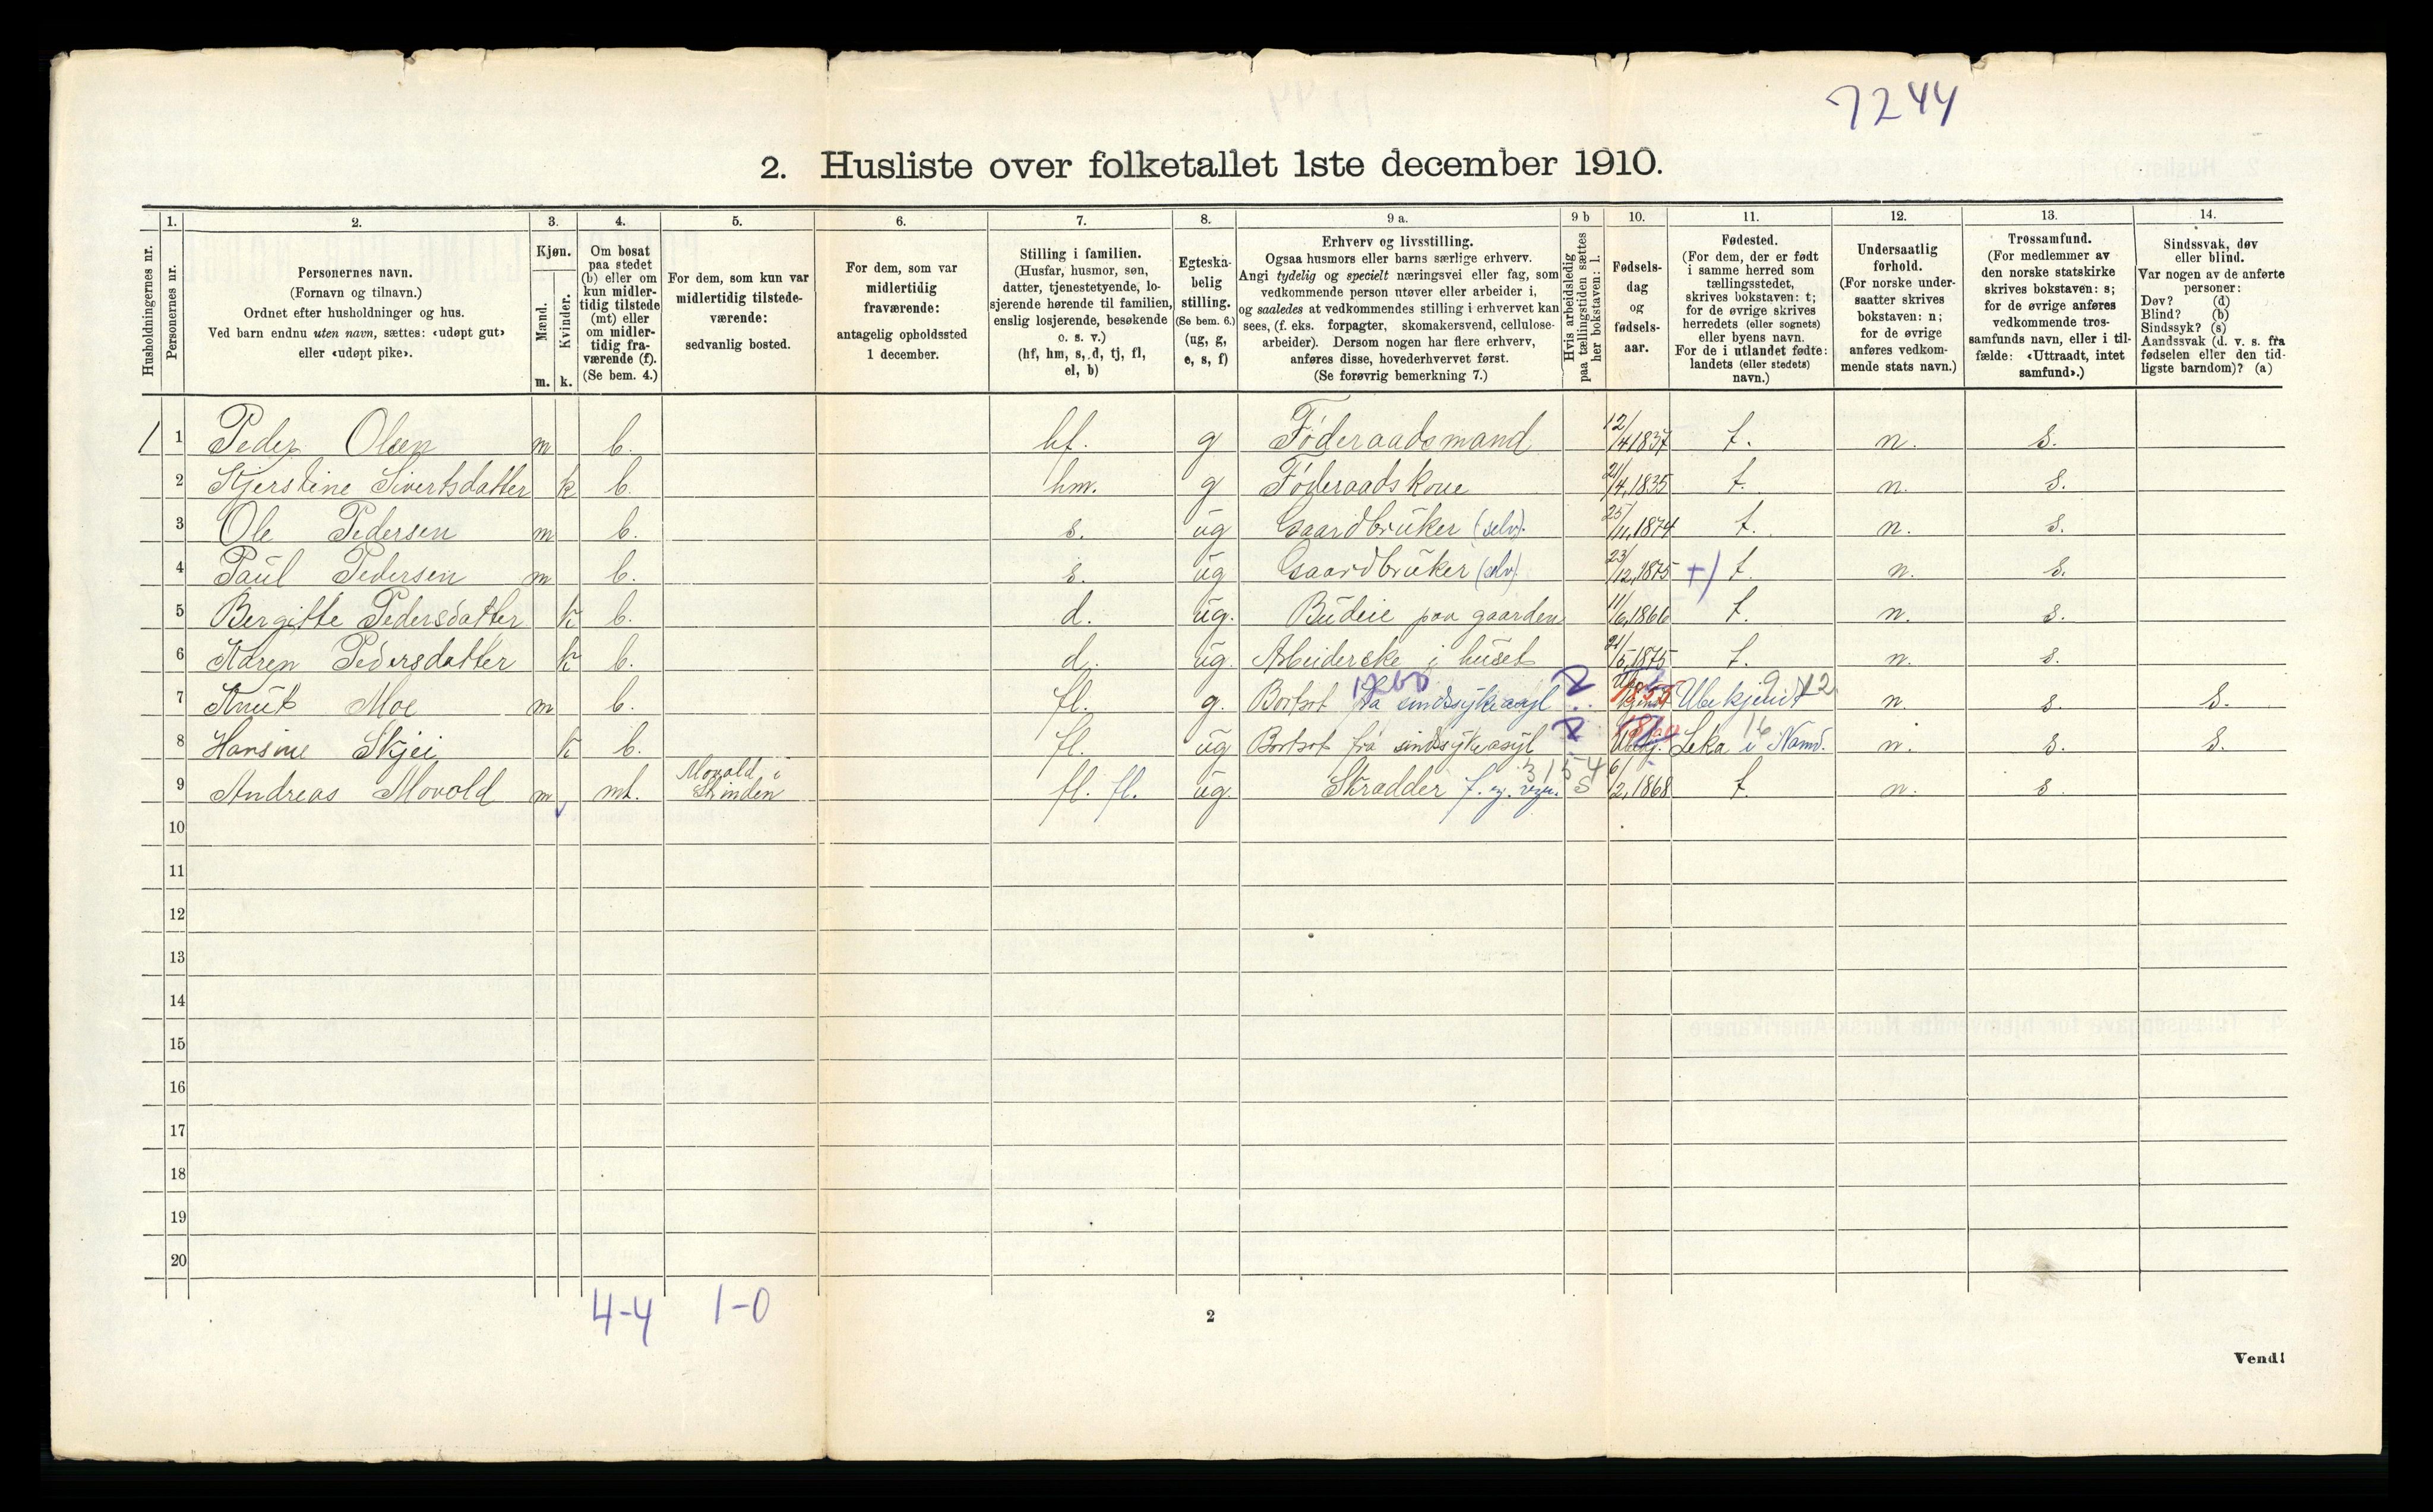 7244
2. Husliste over folketallet 1ste december 1910.
Husholdningernes nr.
1. Personernes nr.
2. Personernes navn.
(Fornavn og tilnavn.)
Ordnet efter husholdninger og hus.
Ved barn endnu uten navn, sættes: «udøpt gut»
eller «udøpt pike».
3. Kjøn.
Mænd. m.
Kvinder. k.
4. Om bosat
paa stedet
(b) eller om
kun midler-
tidig tilstede
(mt) eller
om midler-
tidig fra-
værende (f).
(Se bem. 4.)
5. For dem, som kun var
midlertidig tilstede-
værende:
sedvanlig bosted.
6. For dem, som var
midlertidig
fraværende:
antagelig opholdssted
1 december.
7. Stilling i familien.
(Husfar, husmor, søn,
datter, tjenestetyende, lo-
sjerende hørende til familien,
enslig losjerende, besøkende
o. s. v.)
(hf, hm, s, d, tj, fl,
el, b)
8. Egteska-
belig
stilling.
(Se bem. 6.)
(ug, g,
e, s, f)
9 a. Erhverv og livsstilling.
Ogsaa husmors eller barns særlige erhverv.
Angi tydelig og specielt næringsvei eller fag, som
vedkommende person utøver eller arbeider i,
og saaledes at vedkommendes stilling i erhvervet kan
sees, (f. eks. forpagter, skomakersvend, cellulose-
arbeider). Dersom nogen har flere erhverv,
anføres disse, hovederhvervet først.
(Se forøvrig bemerkning 7.)
9 b Hvis arbeidsledig
paa tællingstiden sættes
her bokstaven: l.
10. Fødsels-
dag
og
fødsels-
aar.
11. Fødested.
(For dem, der er født
i samme herred som
tællingsstedet,
skrives bokstaven: t;
for de øvrige skrives
herredets (eller sognets)
eller byens navn.
For de i utlandet fødte:
landets (eller stedets)
navn.)
12. Undersaatlig
forhold.
(For norske under-
saatter skrives
bokstaven: n;
for de øvrige
anføres vedkom-
mende stats navn.)
13. Trossamfund.
(For medlemmer av
den norske statskirke
skrives bokstaven: s;
for de øvrige anføres
vedkommende tros-
samfunds navn, eller i til-
fælde: «Uttraadt, intet
samfund».)
14. Sindssvak, døv
eller blind.
Var nogen av de anførte
personer:
Døv? (d)
Blind? (b)
Sindssyk? (s)
Aandssvak (d. v. s. fra
fødselen eller den tid-
ligste barndom)? (a)
1 1 Peder Olsen m b. hf. g Føderaadsmand 12/4 1837 t. n. s.
2 Kjerstine Sivertsdatter k b. hm. g Føderaadskone 21/4 1835 t. n. s.
3 Ole Pedersen m b. s. ug Gaardbruker (selv). 25/11 1874 t. n. s.
4 Paul Pedersen m b. s. ug Gaardbruker (selv) 23/12 1875 +) t. n. s.
5 Bergitte Pedersdatter k b. d. ug. Budeie paa gaarden 11/6 1866 t. n. s.
6 Karen Pedersdatter k b. d. ug. Arbeiderske i huset 21/5 1875 t. n. s.
7 Knut Moe m b. fl. g. Bortsat fra sindssykeasyl 1853 Ubekjendt n. s. s.
8 Hansine Skjei k b. fl. ug Bortsat fra sindssykeasyl Ubekj. Leka i Namd. 16 n. s. s.
9 Andreas Movold m mt. Movold i
Stinden fl. fl. ug. Skrædder f. eg. regn. 3154 S 6/2 1868 t. n. s.
10
11
12
13
14
15
16
17
18
19
20
4-4 1-0
2
Vend!